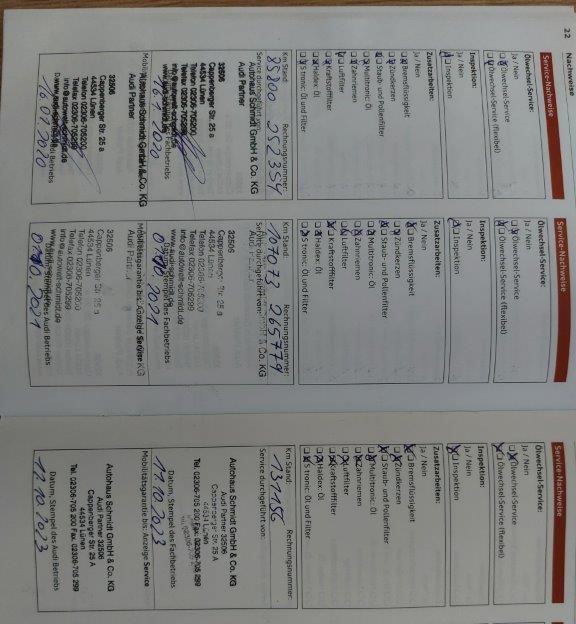 22
Nachweise
Service-Nachweise
Ölwechsel-Service:
Ja / Nein
Ölwechsel-Service
Ölwechsel-Service (flexibel)
Inspektion:
Ja / Nein
Inspektion
Zusatzarbeiten:
Ja / Nein
Bremsflüssigkeit
Zündkerzen
Staub- und Pollenfilter
Multitronic Öl
Zahnriemen
Luftfilter
Kraftstofffilter
Haldex Öl
S tronic Öl und Filter
Km Stand: Rechnungsnummer:
85800 252354
Service durchgeführt von:
Autohaus Schmidt GmbH & Co. KG
Audi Partner
32506
Cappenberger Str. 25 a
44534 Lünen
Telefon 02306-705200
Autohaus Schmidt GmbH & Co. KG
Audi Partner
32506
Cappenberger Str. 25 a
44534 Lünen
Telefon 02306-705200
Service-Nachweise
Ölwechsel-Service:
Ja / Nein
Ölwechsel-Service
Ölwechsel-Service (flexibel)
Inspektion:
Ja / Nein
Inspektion
Zusatzarbeiten:
Ja / Nein
Bremsflüssigkeit
Zündkerzen
Staub- und Pollenfilter
Multitronic Öl
Zahnriemen
Luftfilter
Kraftstofffilter
Haldex Öl
S tronic Öl und Filter
Km Stand: Rechnungsnummer:
107073 265779
Service durchgeführt von:
32506
Cappenberger Str. 25 a
44534 Lünen
Telefon 02306-705200
Telefax 02306-705299
info@autohaus-schmidt.de
Mobilitätsgarantie bis: Anzeige Service
32506
Cappenberger Str. 25 a
44534 Lünen
Telefon 02306-705200
Telefax 02306-705299
Service-Nachweise
Ölwechsel-Service:
Ja / Nein
Ölwechsel-Service
Ölwechsel-Service (flexibel)
Inspektion:
Ja / Nein
Inspektion
Zusatzarbeiten:
Ja / Nein
Bremsflüssigkeit
Zündkerzen
Staub- und Pollenfilter
Multitronic Öl
Zahnriemen
Luftfilter
Kraftstofffilter
Haldex Öl
S tronic Öl und Filter
Km Stand: Rechnungsnummer:
131156
Service durchgeführt von:
Autohaus Schmidt GmbH & Co. KG
Audi Partner 32506
Cappenberger Str. 25 A
44534 Lünen
Tel. 02306-705 200 Fax. 02306-705 299
11.10.2023
Datum, Stempel des Fachbetriebs
Mobilitätsgarantie bis: Anzeige Service
Autohaus Schmidt GmbH & Co. KG
Audi Partner 32506
Cappenberger Str. 25 A
44534 Lünen
Tel. 02306-705 200 Fax. 02306-705 299
11.10.2023
Datum, Stempel des Audi Betriebs